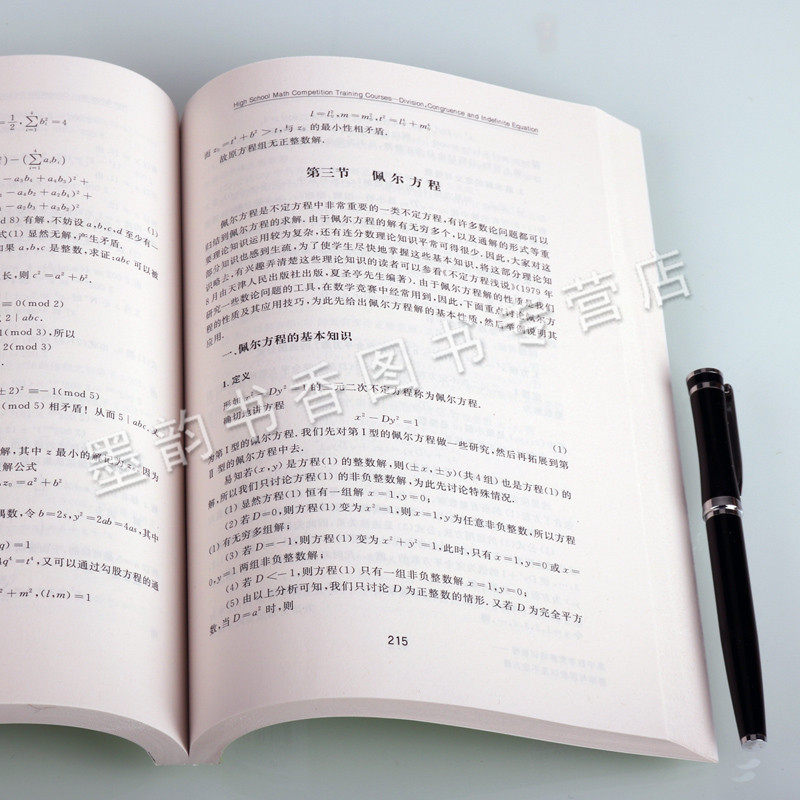 1/2, ∑b_i^2=4
) − (∑a_ib_i)
−a_3b_4+a_4b_3)^2+
−a_4b_2+a_2b_4)^2+
−a_2b_3+a_3b_2)^2
d 8) 有解, 不妨设 a,b,c,d 至少有一
(1)
式(1) 显然无解, 产生矛盾.
如果 a,b,c 是整数, 求证: abc 可以被
长, 则 c^2=a^2+b^2.
≡0(mod 2)
或 2∣abc.
1(mod 3), 所以
2(mod 3)
±2)^2≡−1(mod 5)
(mod 5) 相矛盾! 从而 5∣abc.
解, 其中 z 最小的解记为 z_0. 因为
解公式
z_0=a^2+b^2
偶数, 令 b=2s, y^2=2ab=4as, 其中
q)=1
4q^4=t^4, 又可以通过勾股方程的通
^2+m^2, (l,m)=1
High School Math Competition Training Courses—Division,Congruence and Indefinite Equation
l=l_0^2, m=m_0^2, t^2=l_0^4+m_0^4
而 z_0=t^4+b^2>t, 与 z_0 的最小性相矛盾.
故原方程组无正整数解.
第三节 佩尔方程
佩尔方程是不定方程中非常重要的一类不定方程, 有许多数论问题都可以
归结到佩尔方程的求解. 由于佩尔方程的解有无穷多个, 以及通解的形式等重
要理论知识运用较为复杂, 还有连分数理论知识平常可得很少, 因此, 大家对这
部分知识也感到生疏, 为了使学生尽快地掌握这些基本知识, 将这部分理论知
识略去, 有兴趣弄清楚这些理论知识的读者可以参看《不定方程浅说》(1979 年
8 月由天津人民出版社出版, 夏圣亭先生编著). 由于佩尔方程解的性质是我们
研究一些数论问题的工具, 在数学竞赛中经常用到, 因此, 下面重点讨论佩尔方
程的性质及其应用技巧, 为此先给出佩尔方程解的基本性质, 然后举例说明其
应用.
一、佩尔方程的基本知识
1. 定义
形如 x^2−Dy^2=1 的二元二次不定方程称为佩尔方程.
确切地讲方程
x^2−Dy^2=1 (1)
为第Ⅰ型的佩尔方程. 我们先对第Ⅰ型的佩尔方程做一些研究, 然后再拓展到第
Ⅱ型的佩尔方程中去.
易知若(x,y) 是方程(1) 的整数解, 则(±x,±y)(共4组) 也是方程(1) 的
解, 所以我们只讨论方程(1) 的非负整数解, 为此先讨论特殊情况.
(1) 显然方程(1) 恒有一组解 x=1,y=0;
(2) 若 D=0, 则方程(1) 变为 x^2=1, 则 x=1,y 为任意非负整数, 所以方程
(1) 有无穷多组解;
(3) 若 D=−1, 则方程(1) 变为 x^2+y^2=1, 此时, 只有 x=1,y=0 或 x=
0,y=1 两组非负整数解;
(4) 若 D<−1, 则方程(1) 只有一组非负整数解 x=1,y=0;
(5) 由以上分析可知, 我们只讨论 D 为正整数的情形. 又若 D 为完全平方
数, 当 D=a^2 时, 则
215
墨韵书香图书专营店